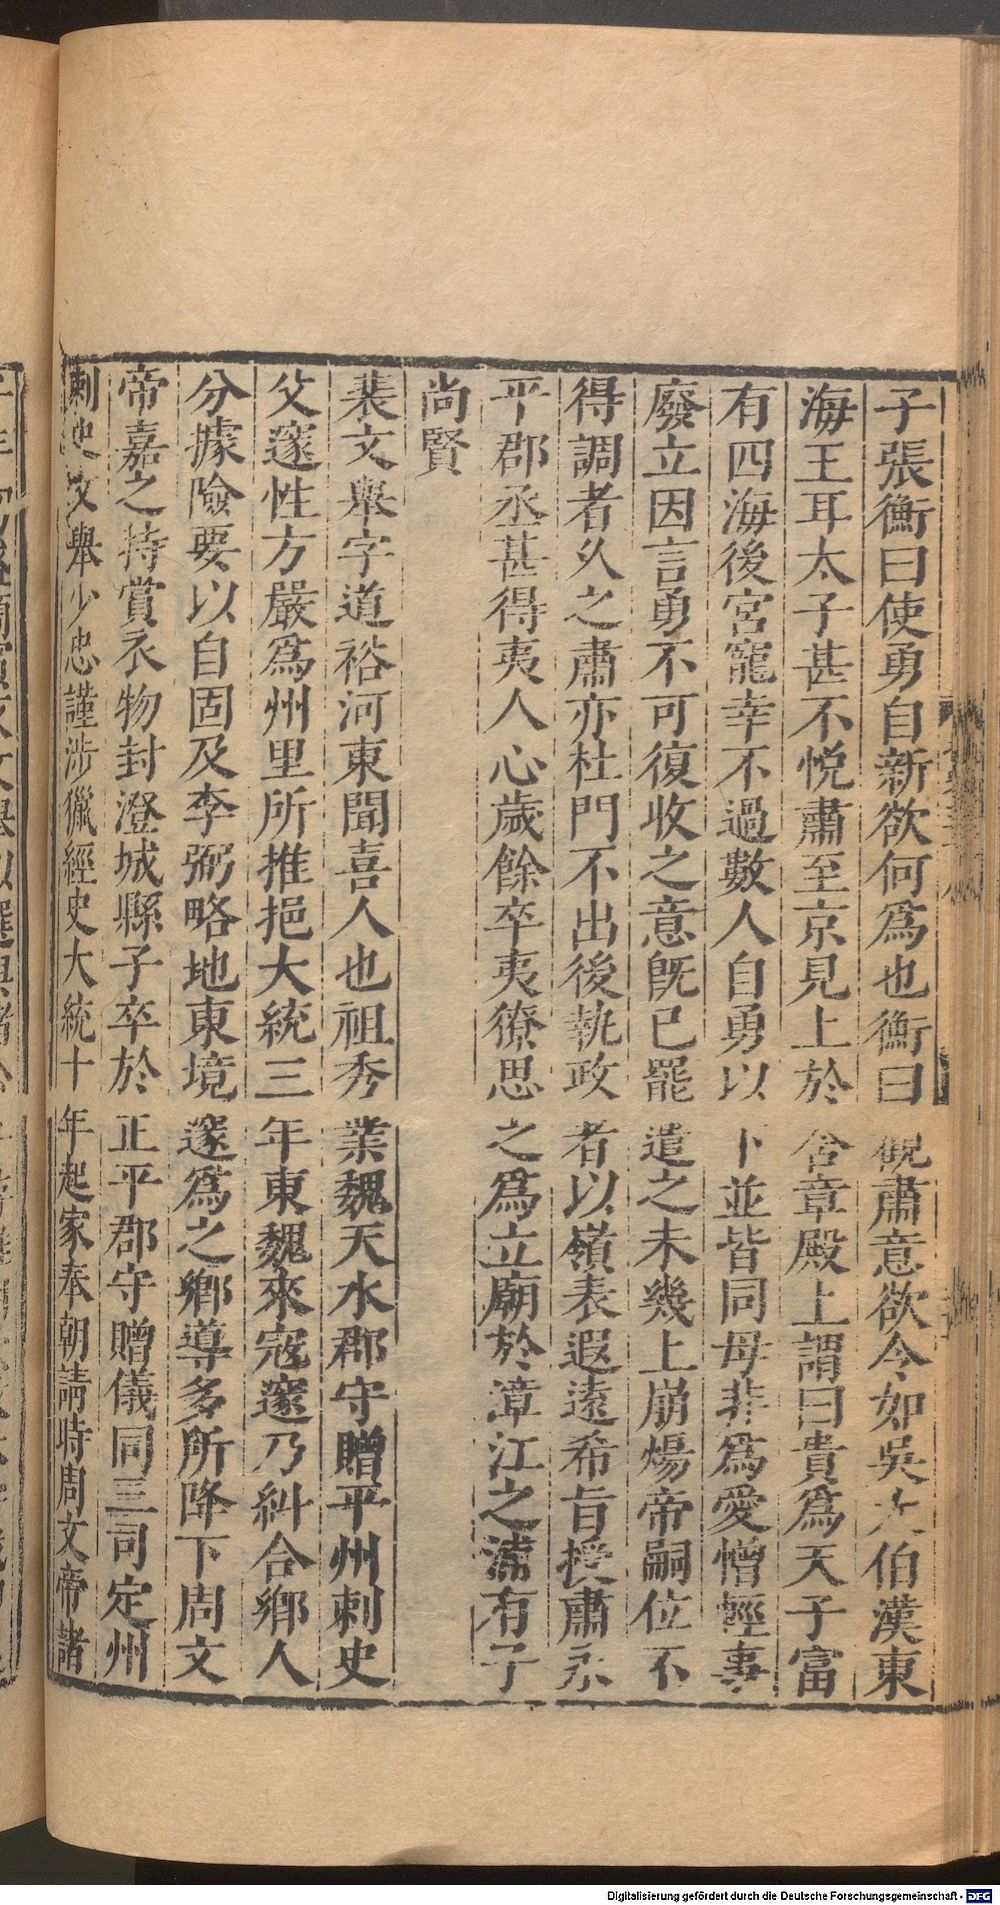 子張衡曰使勇自新欲何爲也衡曰觀肅意欲令如吳太伯漢東
海王耳太子甚不悅肅至京見上於含章殿上謂曰貴爲天子富
有四海後宮寵幸不過數人自勇以下並皆同母非爲愛憎輕事
廢立因言勇不可復收之意旣已罷遣之未幾上崩煬帝嗣位不
得調者乆之肅亦杜門不出後執政者以嶺表遐遠希旨授肅永
平郡丞甚得夷人心歲餘卒夷獠思之爲立廟於漳江之浦有子
尚賢
裴文舉字道裕河東聞喜人也祖秀業魏天水郡守贈平州刺史
父邃性方嚴爲州里所推挹大統三年東魏來寇邃乃糾合鄉人
分據險要以自固及李弼略地東境邃爲之鄉導多所降下周文
帝嘉之特賞衣物封澄城縣子卒於正平郡守贈儀同三司定州
刺史文舉少忠謹涉獵經史大統十年起家奉朝請時周文帝諸
Digitalisierung gefördert durch die Deutsche Forschungsgemeinschaft - DFG